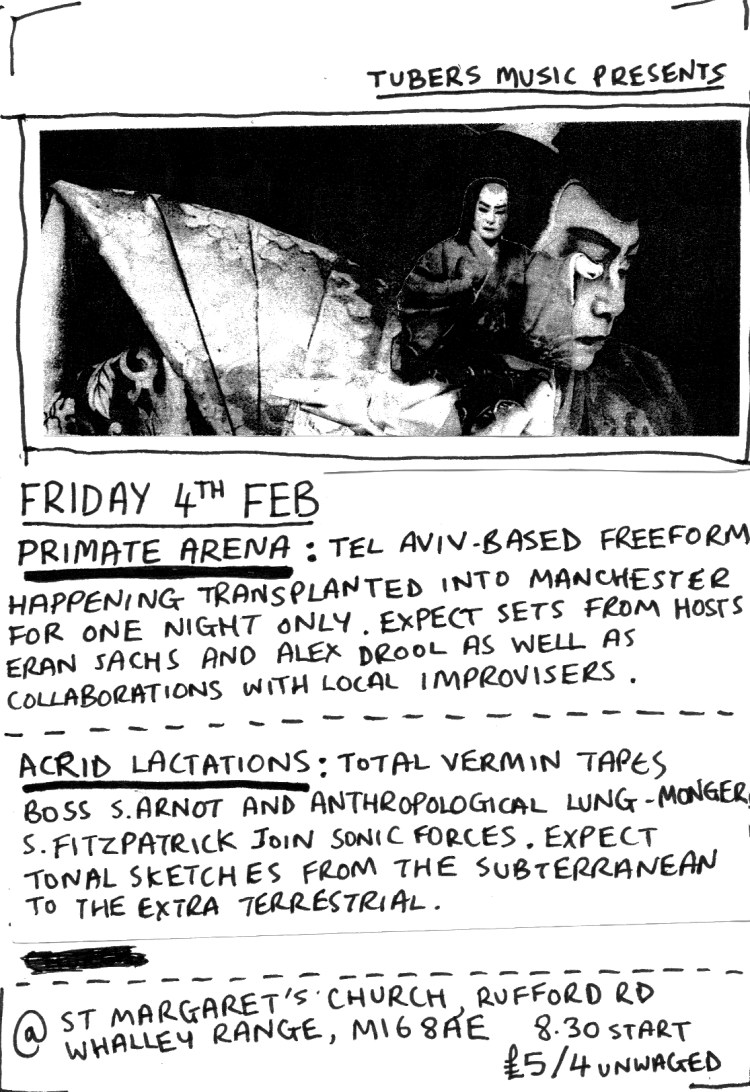 TUBERS MUSIC PRESENTS
FRIDAY 4TH FEB
PRIMATE ARENA : TEL AVIV-BASED FREEFORM
HAPPENING TRANSPLANTED INTO MANCHESTER
FOR ONE NIGHT ONLY. EXPECT SETS FROM HOSTS
ERAN SACHS AND ALEX DROOL AS WELL AS
COLLABORATIONS WITH LOCAL IMPROVISERS.
ACRID LACTATIONS: TOTAL VERMIN TAPES
BOSS S.ARNOT AND ANTHROPOLOGICAL LUNG-MONGER,
S.FITZPATRICK JOIN SONIC FORCES. EXPECT
TONAL SKETCHES FROM THE SUBTERRANEAN
TO THE EXTRA TERRESTRIAL.
@ ST MARGARET'S CHURCH, RUFFORD RD
WHALLEY RANGE, M16 8AE 8.30 START
£5/4 UNWAGED